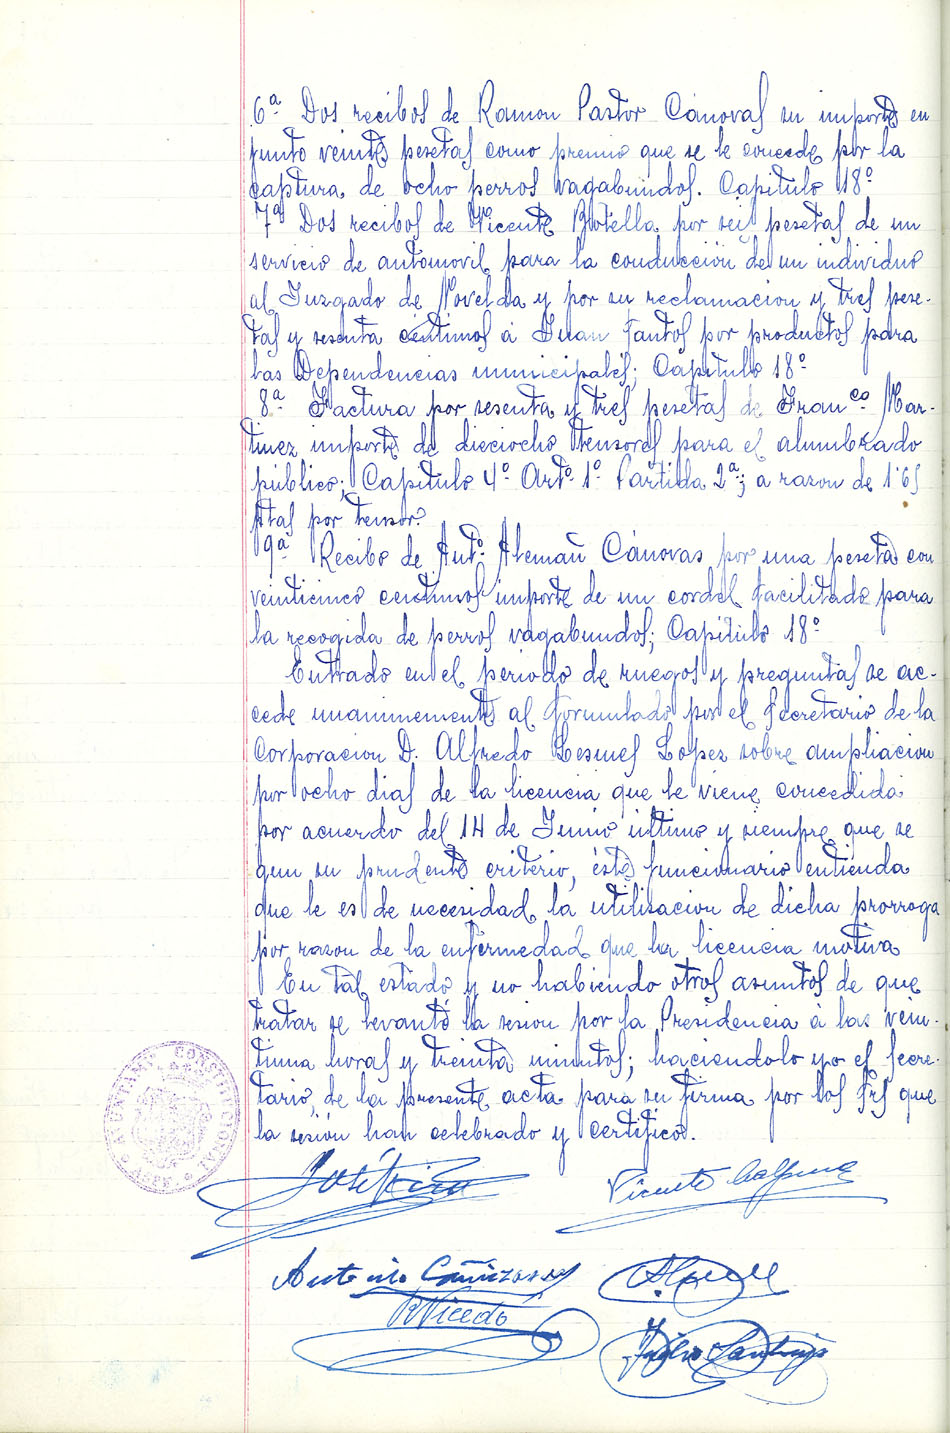 6ª Dos recibos de Ramon Pastor Cánovas su importe en
junto veinte pesetas como premio que se le concede por la
captura de ocho perros vagabundos. Capitulo 18º
7ª Dos recibos de Vicente Botella por seis pesetas de un
servicio de automovil para la conducción de un individuo
al Juzgado de Novelda y por su reclamacion y tres pese-
tas y sesenta céntimos á Juan Santos por productos para
las Dependencias municipales; Capitulo 18º
8ª Factura por sesenta y tres pesetas de Franco Mar-
tinez importe de dieciocho tensores para el alumbrado
público; Capitulo 4º Arto 1º Partida 2ª; a razon de 1'65
ptas por tensor.
9ª Recibo de Anto Alemañ Cánovas por una peseta con
veinticinco centimos importe de un cordel facilitado para
la recogida de perros vagabundos; Capitulo 18º
Entrado en el periodo de ruegos y preguntas se ac-
cede unanimemente al formulado por el Secretario de la
Corporacion D. Alfredo Lesmes Lopez sobre ampliacion
por ocho dias de la licencia que le viene concedida
por acuerdo del 14 de Junio último y siempre que se
gun su prudente criterio, éste funcionario entienda
que le es de necesidad la utilizacion de dicha prorroga
por razon de la enfermedad que la licencia motiva
En tal estado y no habiendo otros asuntos de que
tratar se levantó la sesion por la Presidencia á las vein-
tiuna horas y treinta minutos; haciendolo yo el Secre-
tario, de la presente acta para su firma por los Srs que
la sesión han celebrado y certifico.
AYUNTAMTO CONSTITUCIONAL
ASPE
José
Vicente
Antonio Cañizares
R Vicedo
Julio